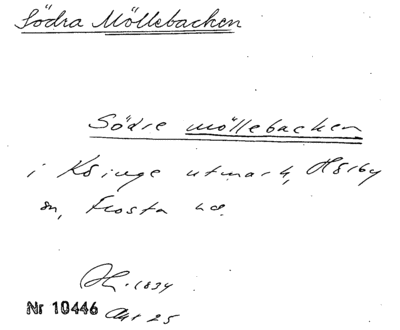 Södra Möllebacken
Södre möllebacken
i Köinge utmark, Hörby
sn, Frosta hd.
1834
Nr 10446 Akt 25